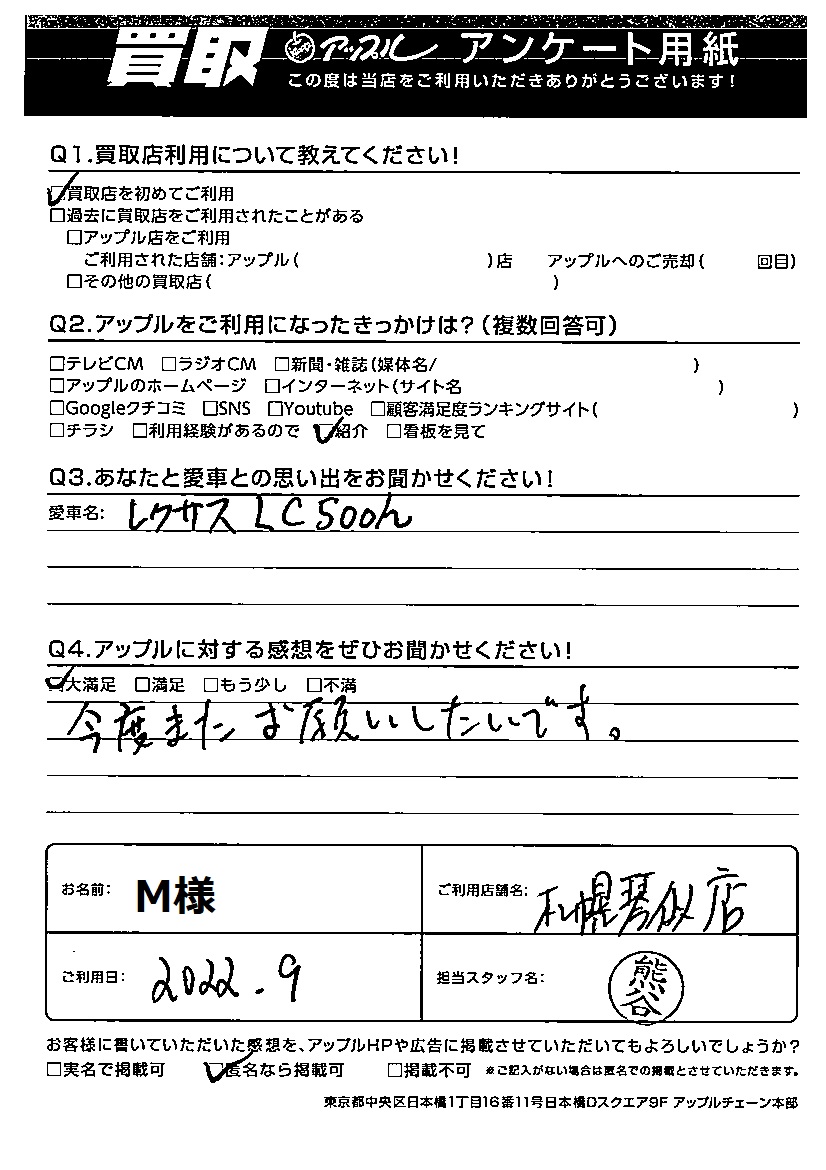 買取 アップル アンケート用紙
この度は当店をご利用いただきありがとうございます!
Q1.買取店利用について教えてください!
☑買取店を初めてご利用
□過去に買取店をご利用されたことがある
□アップル店をご利用
ご利用された店舗:アップル( )店 アップルへのご売却( 回目)
□その他の買取店( )
Q2.アップルをご利用になったきっかけは?(複数回答可)
□テレビCM □ラジオCM □新聞・雑誌(媒体名/ )
□アップルのホームページ □インターネット(サイト名 )
□Googleクチコミ □SNS □Youtube □顧客満足度ランキングサイト( )
□チラシ □利用経験があるので ☑紹介 □看板を見て
Q3.あなたと愛車との思い出をお聞かせください!
愛車名: レクサス LC500h
Q4.アップルに対する感想をぜひお聞かせください!
☑大満足 □満足 □もう少し □不満
今度またお願いしたいです。
お名前: M様 ご利用店舗名: 札幌琴似店
ご利用日: 2022.9 担当スタッフ名: 熊谷
お客様に書いていただいた感想を、アップルHPや広告に掲載させていただいてもよろしいでしょうか?
□実名で掲載可 ☑匿名なら掲載可 □掲載不可 ※ご記入がない場合は匿名での掲載とさせていただきます。
東京都中央区日本橋1丁目16番11号日本橋Dスクエア9F アップルチェーン本部